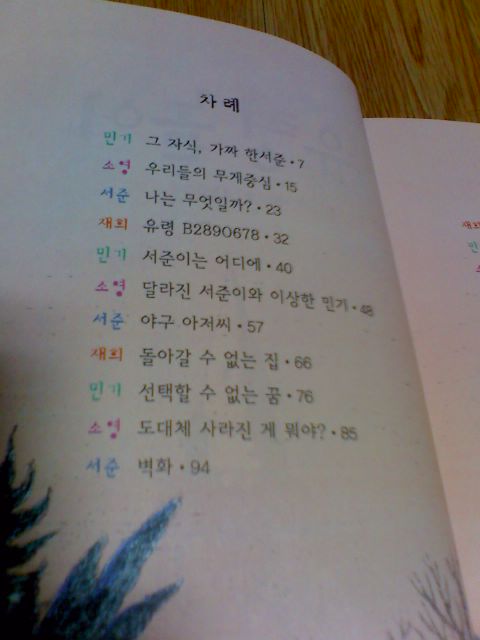 차례
민기 그 자식, 가짜 한서준 • 7
소영 우리들의 무게중심 • 15
서준 나는 무엇일까? • 23
재희 유령 B2890678 • 32
민기 서준이는 어디에 • 40
소영 달라진 서준이와 이상한 민기 • 48
서준 야구 아저씨 • 57
재희 돌아갈 수 없는 집 • 66
민기 선택할 수 없는 꿈 • 76
소영 도대체 사라진 게 뭐야? • 85
서준 벽화 • 94
재희